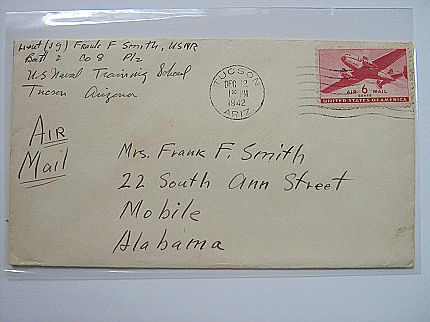 Lieut (jg) Frank F Smith, USNR
Batt 2 Co 8 Plt
US Naval Training School
Tucson Arizona
TUCSON
DEC 12
1 PM
1942
ARIZ.
AIR 6 MAIL
CENTS
UNITED STATES OF AMERICA
Air
Mail
Mrs. Frank F. Smith
22 South Ann Street
Mobile
Alabama